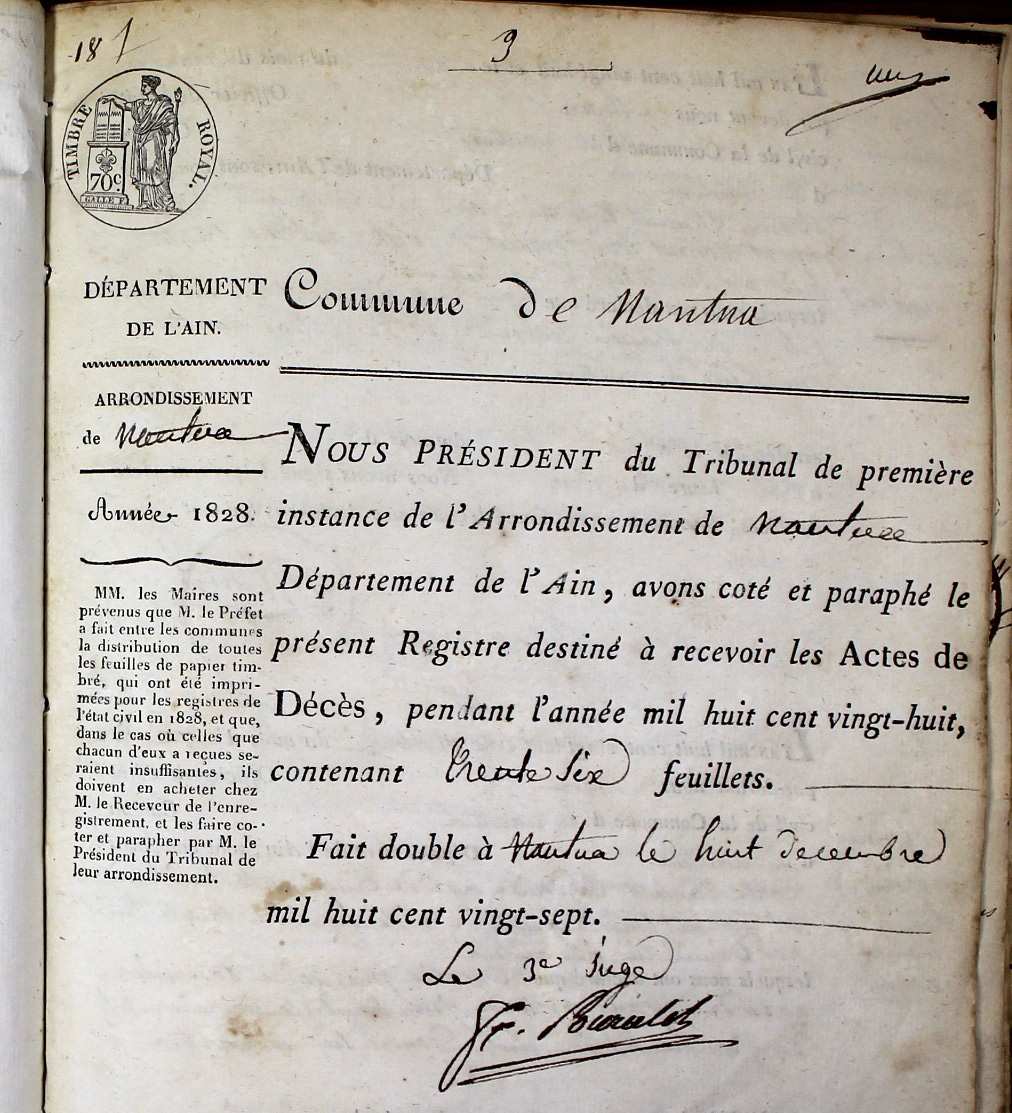 3
TIMBRE ROYAL.
70c
GALLE F.
DÉPARTEMENT
DE L'AIN.
ARRONDISSEMENT
de Nantua
Année 1828.
MM. les Maires sont
prévenus que M. le Préfet
a fait entre les communes
la distribution de toutes
les feuilles de papier tim-
bré, qui ont été impri-
mées pour les registres de
l'état civil en 1828, et que,
dans le cas où celles que
chacun d'eux a reçues se-
raient insuffisantes, ils
doivent en acheter chez
M. le Receveur de l'enre-
gistrement, et les faire co-
ter et parapher par M. le
Président du Tribunal de
leur arrondissement.
Commune de Nantua
NOUS PRÉSIDENT du Tribunal de première
instance de l'Arrondissement de Nantua
Département de l'Ain, avons coté et paraphé le
présent Registre destiné à recevoir les Actes de
Décès, pendant l'année mil huit cent vingt-huit,
contenant trente six feuillets.
Fait double à Nantua le huit decembre
mil huit cent vingt-sept.
Le 3e Juge